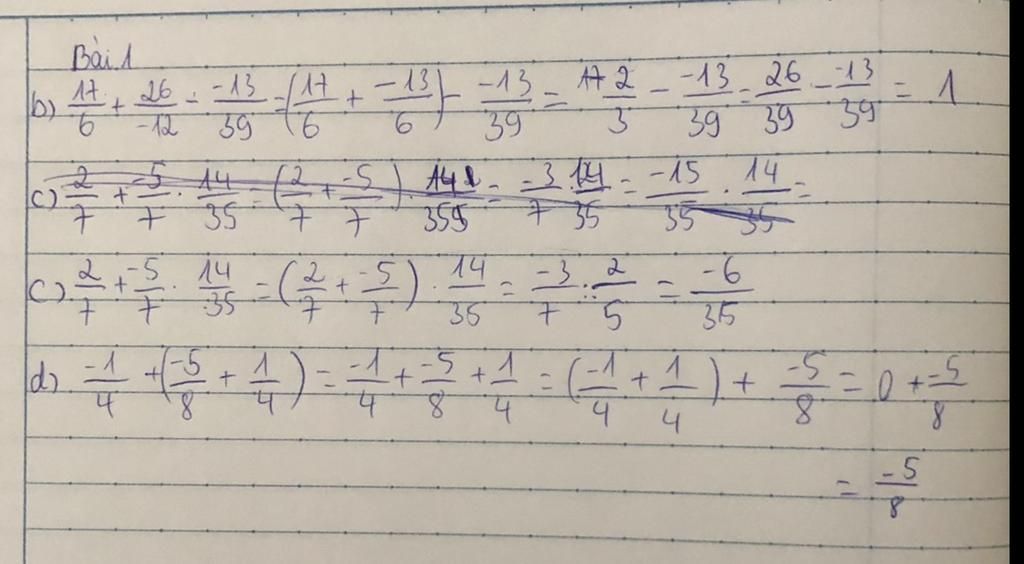 Bài 1
b) 17/6 + 26/-12 - -13/39 = (17/6 + -13/6) - -13/39 = 2/3 - -13/39 = 26/39 - -13/39 = 1
c) 2/7 + -5/7 . 14/35 = (2/7 + -5/7) . 14/35 = -3/7 . 14/35 = -15/35 . 14/35 =
c) 2/7 + -5/7 . 14/35 = (2/7 + -5/7) . 14/35 = -3/7 . 2/5 = -6/35
d) -1/4 + (-5/8 + 1/4) = -1/4 + -5/8 + 1/4 = (-1/4 + 1/4) + -5/8 = 0 + -5/8
= -5/8